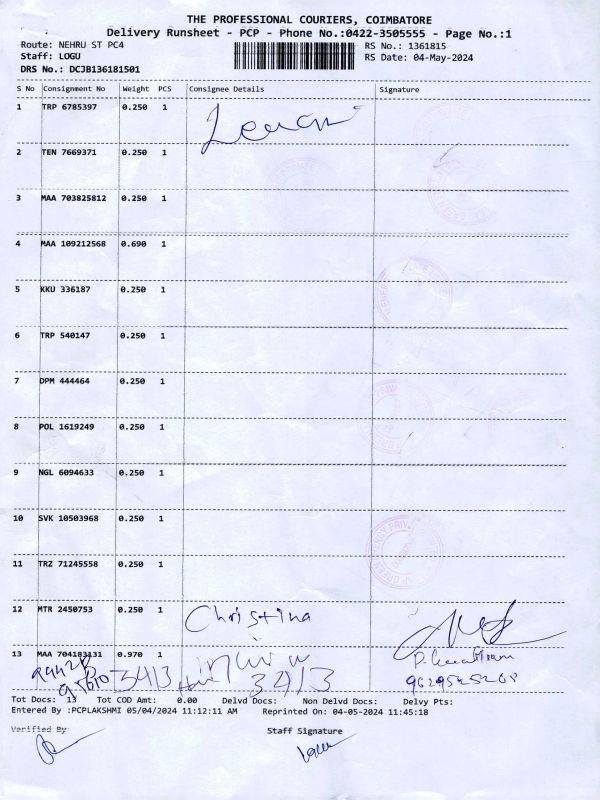 THE PROFESSIONAL COURIERS, COIMBATORE
Delivery Runsheet - PCP - Phone No.:0422-3505555 - Page No.:1
Route: NEHRU ST PC4 RS No.: 1361815
Staff: LOGU RS Date: 04-May-2024
DRS No.: DCJB136181501
S No Consignment No Weight PCS Consignee Details Signature
1 TRP 6785397 0.250 1
2 TEN 7669371 0.250 1
3 MAA 703825812 0.250 1
4 MAA 109212568 0.690 1
5 KKU 336187 0.250 1
6 TRP 540147 0.250 1
7 DPM 444464 0.250 1
8 POL 1619249 0.250 1
9 NGL 6094633 0.250 1
10 SVK 10503968 0.250 1
11 TRZ 71245558 0.250 1
12 MTR 2450753 0.250 1 Christina
13 MAA 704183131 0.970 1
3413 3413
Tot Docs: 13 Tot COD Amt: 0.00 Delvd Docs: Non Delvd Docs: Delvy Pts:
Entered By :PCPLAKSHMI 05/04/2024 11:12:11 AM Reprinted On: 04-05-2024 11:45:18
Verified By Staff Signature